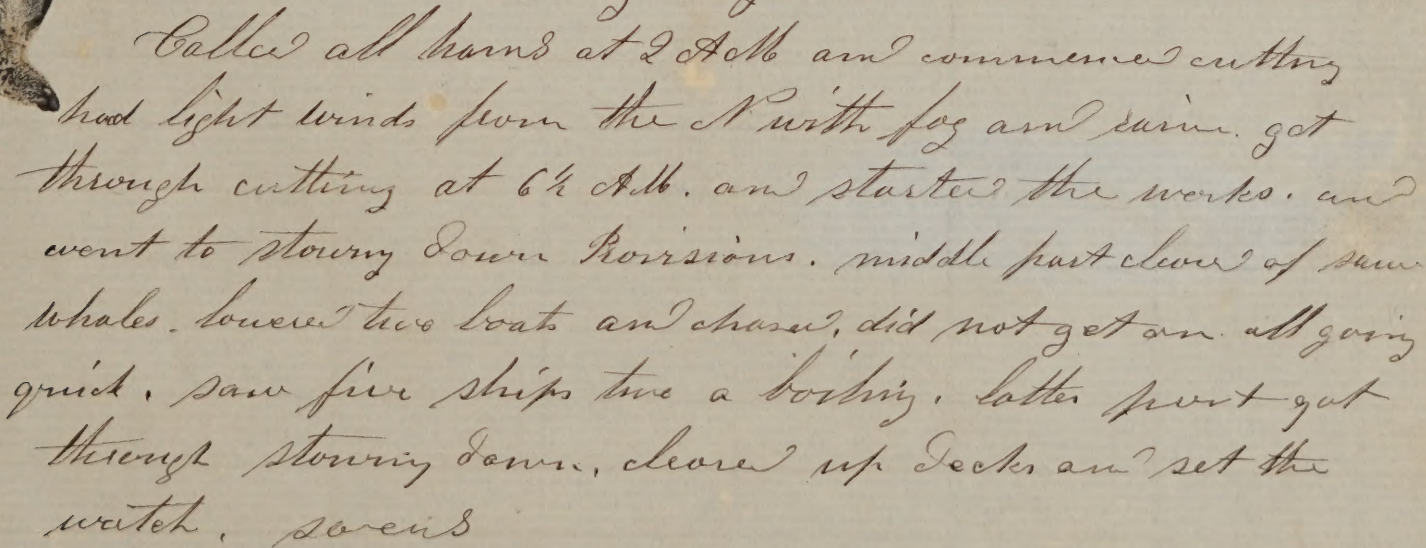 Called all hands at 2 AM and commenced cutting
had light winds from the N with fog and rain. got
through cutting at 6½ AM. and started the works. and
went to stowing down Provisions. middle part cleare of saw
whales. lowered two boats and chased. did not get on. all going
quick. saw five ships two a boiling. latter part got
through stowing down. cleared up decks and set the
watch.